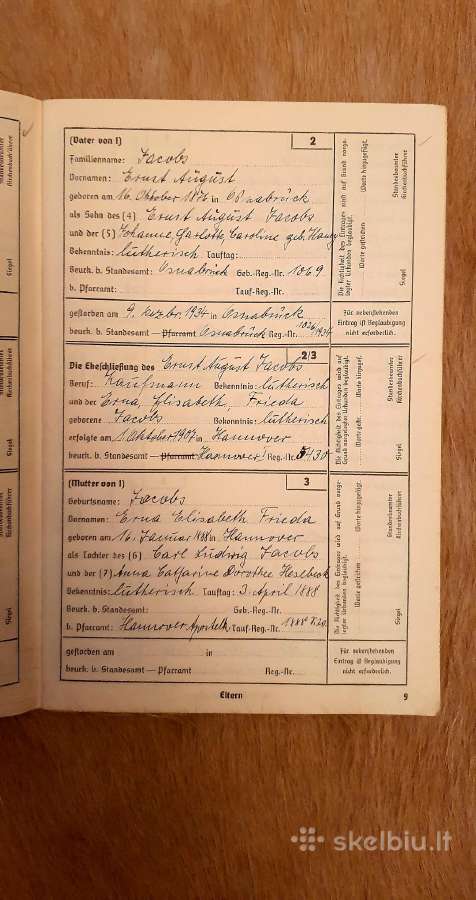 (Vater von 1) 2
Familienname: Jacobs
Vornamen: Ernst August
geboren am 16. Oktober 1876 in Osnabrück
als Sohn des (4) Ernst August Jacobs
und der (5) Johanne Charlotte Caroline geb.
Bekenntnis: lutherisch Tauftag:
Beurk. b. Standesamt: Osnabrück Geb.-Reg.-Nr. 1069
b. Pfarramt: Tauf-Reg.-Nr.
gestorben am 9. Dezbr. 1934 in Osnabrück
beurk. b. Standesamt — Pfarramt Osnabrück Reg.-Nr. 1026/1934
Für nebenstehenden
Eintrag ist Beglaubigung
nicht erforderlich.
Die Eheschließung des Ernst August Jacobs 2/3
Beruf: Kaufmann Bekenntnis: lutherisch
und der Erna Elisabeth Frieda
geborene Jacobs Bekenntnis: lutherisch
erfolgte am 1. Oktober 1907 in Hannover
beurk. b. Standesamt — Pfarramt Hannover I Reg.-Nr. 430
(Mutter von 1) 3
Geburtsname: Jacobs
Vornamen: Erna Elisabeth Frieda
geboren am 16. Januar 1888 in Hannover
als Tochter des (6) Carl Ludwig Jacobs
und der (7) Anna Catharine Dorothee
Bekenntnis: lutherisch Tauftag: 3. April 1888
Beurk. b. Standesamt: Geb.-Reg.-Nr.
b. Pfarramt: Hannover Tauf-Reg.-Nr. 1888
gestorben am in
beurk. b. Standesamt — Pfarramt Reg.-Nr.
Für nebenstehenden
Eintrag ist Beglaubigung
nicht erforderlich.
Standesbeamter
Kirchenbuchführer
Siegel
Standesbeamter
Kirchenbuchführer
Siegel
Standesbeamter
Kirchenbuchführer
Siegel
Eltern 9
skelbiu.lt